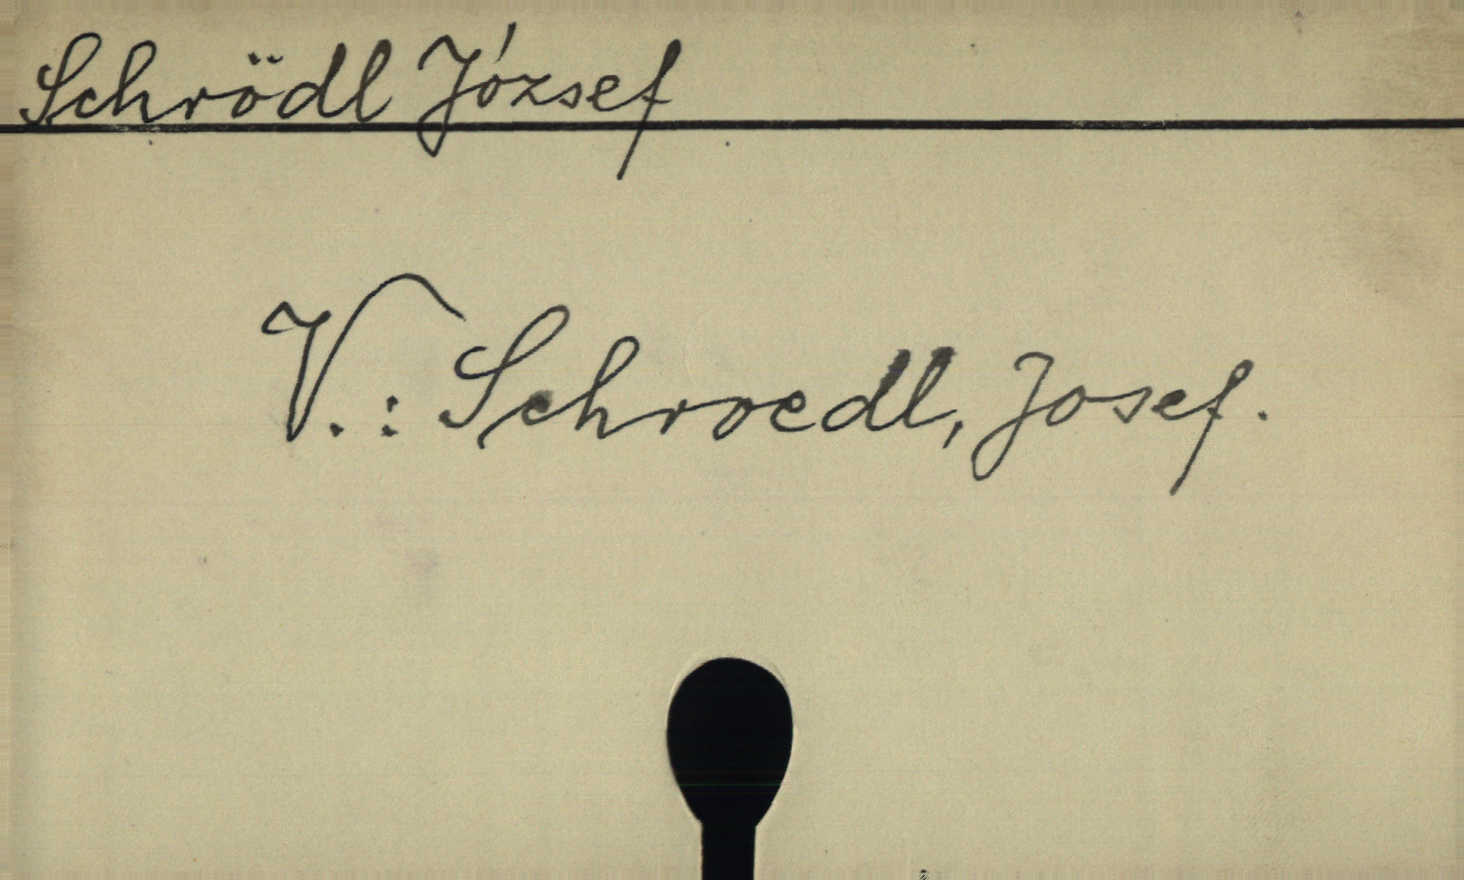 Schrödl József
V.: Schroedl, Josef.